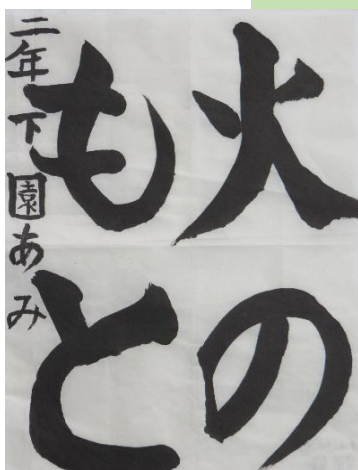 火の
もと
二年下園あみ